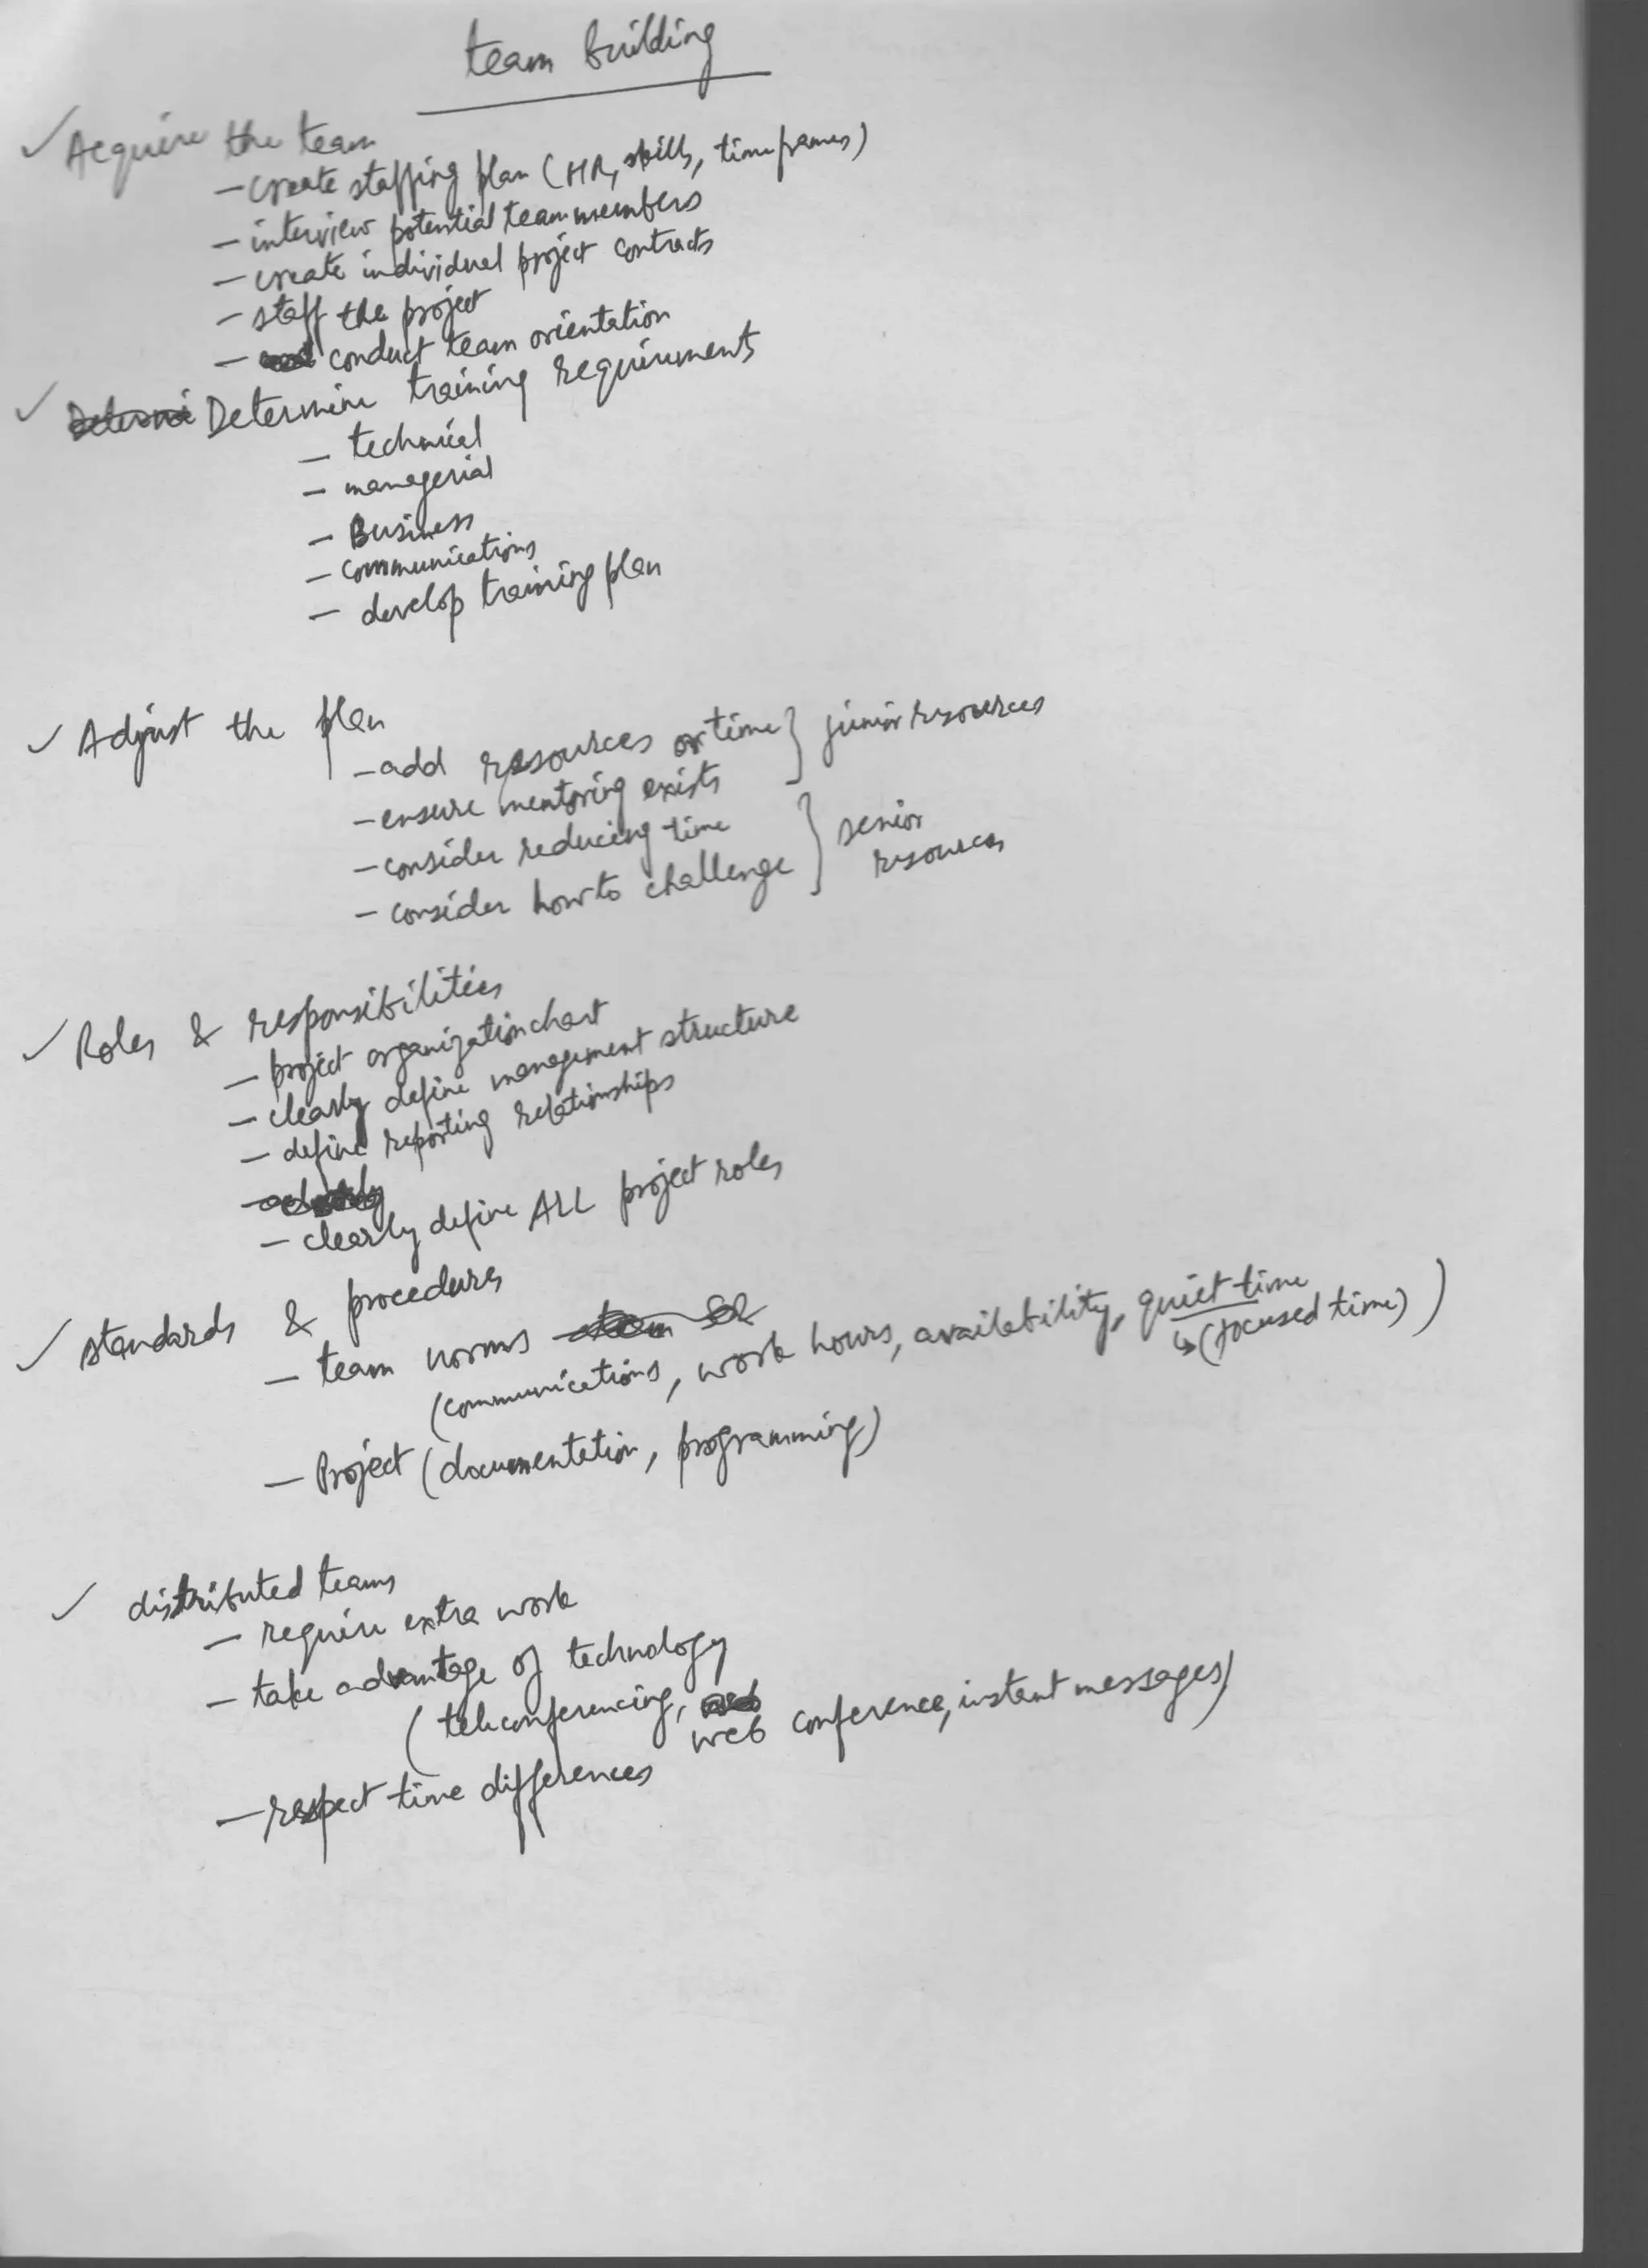 team building
✓ Acquire the team
- create staffing plan (HR, skills, timeframes)
- interview potential team members
- create individual project contracts
- staff the project
- conduct team orientation
✓ Determine training requirments
- technical
- managerial
- Business
- communications
- develop training plan
✓ Adjust the plan
- add resources or time } junior resources
- ensure mentoring exists
- consider reducing time } senior resources
- consider how to challenge
✓ Roles & responsibilities
- project organization chart
- clearly define management structure
- define reporting relationships
- clearly define ALL project roles
✓ standards & procedures
- team norms
(communications, work hours, availability, quiet time
↳ (focused time))
- Project (documentation, programming)
✓ distributed teams
- require extra work
- take advantage of technology
(teleconferencing, web conference, instant messages)
- respect time differences